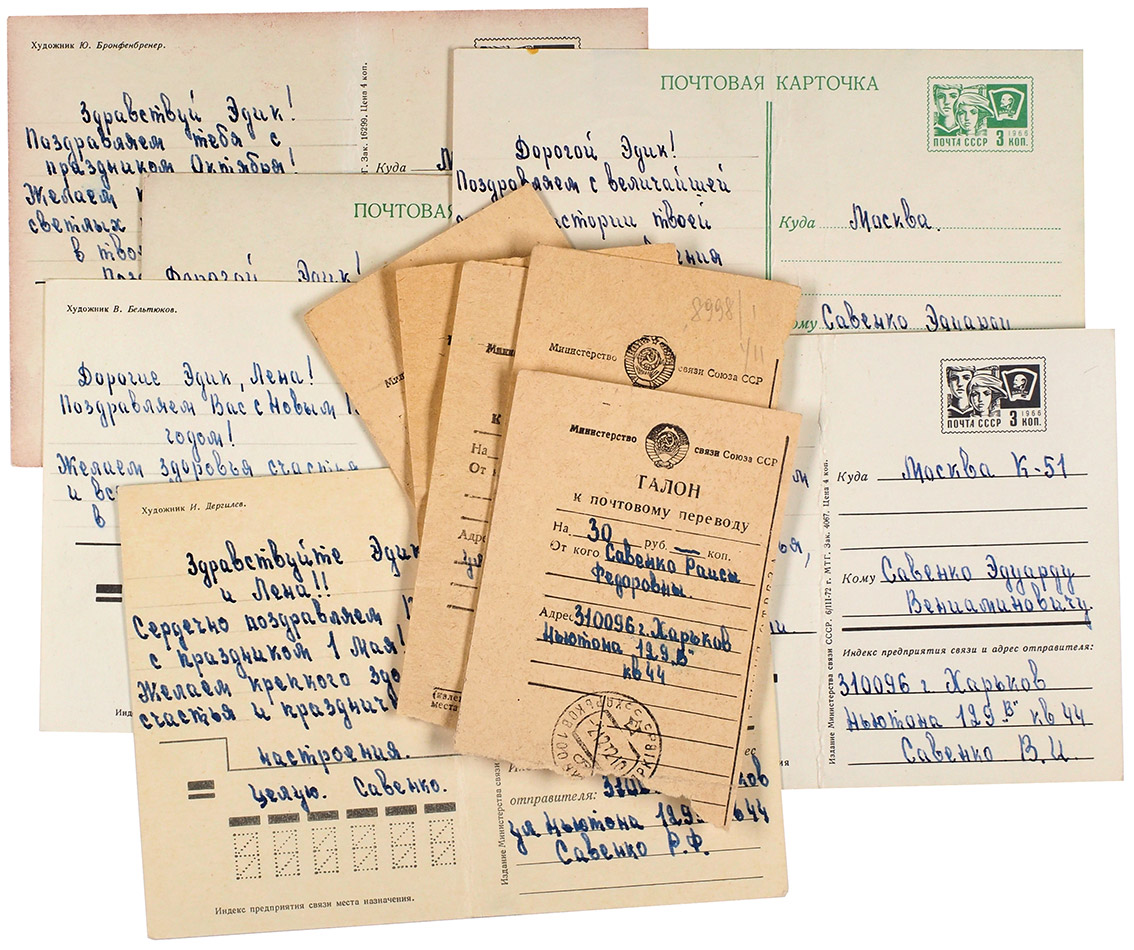 Художник Ю. Бронфенбренер.
Здравствуй Эдик!
Поздравляем тебя с
праздником Октября!
Желаем
светлых
в
Г. Зак. 16299. Цена 4 коп.
Куда
ПОЧТОВАЯ КАРТОЧКА
1966
ПОЧТА СССР 3 КОП.
Дорогой Эдик!
Поздравляем с величайшей
твоей
Куда Москва.
Савенко Эдуарду
Дорогой Эдик!
Художник В. Бельтюков.
Дорогие Эдик, Лена!
Поздравляем Вас с Новым
годом!
Желаем здоровья счастья
и
в
Художник И. Дергилев.
Здравствуйте Эдик
и Лена!!
Сердечно поздравляем
с праздником 1 Мая!
Желаем крепкого
счастья и
настроения.
Целую. Савенко.
Индекс предприятия связи места назначения.
Издание Министерства связи
отправителя:
ул Ньютона 129
Савенко Р.Ф.
На
От
8998/1
Министерство связи Союза ССР
Министерство связи Союза ССР
ТАЛОН
к почтовому переводу
На 30 руб. — коп.
От кого Савенко Раисы
Федоровны.
Адрес 310096 г. Харьков
Ньютона 129 "В"
кв 44
1966
ПОЧТА СССР 3 КОП.
Куда Москва К-51
Кому Савенко Эдуарду
Вениаминовичу.
Индекс предприятия связи и адрес отправителя:
310096 г Харьков
Ньютона 129 "В" кв 44
Савенко В.И.
Издание Министерства связи СССР. 6/III-72 г. МТГ. Зак. 4067. Цена 4 коп.